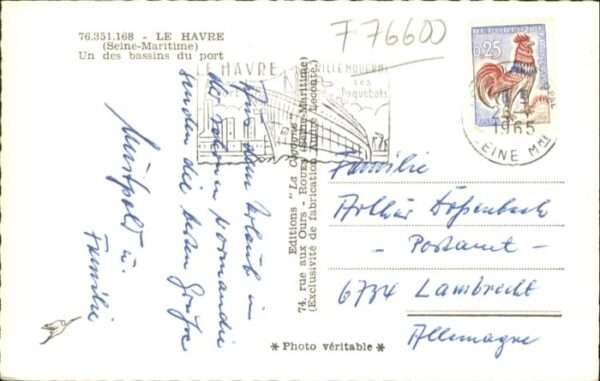 76.351.168 - LE HAVRE
(Seine-Maritime)
Un des bassins du port
F 76600
LE HAVRE
VILLE MODERNE
Ses
Paquebots
0,25
1965
SEINE MME
Aus dem Urlaub in
der schönen Normandie
senden die besten Grüße
Luitpold u.
Familie
Editions "La Cigogne"
74, rue aux Ours - ROUEN (Seine-Maritime)
(Exclusivité de fabrication André Leconte.)
Familie
Arthur
- Postamt -
6734 Lambrecht
Allemagne
* Photo véritable *